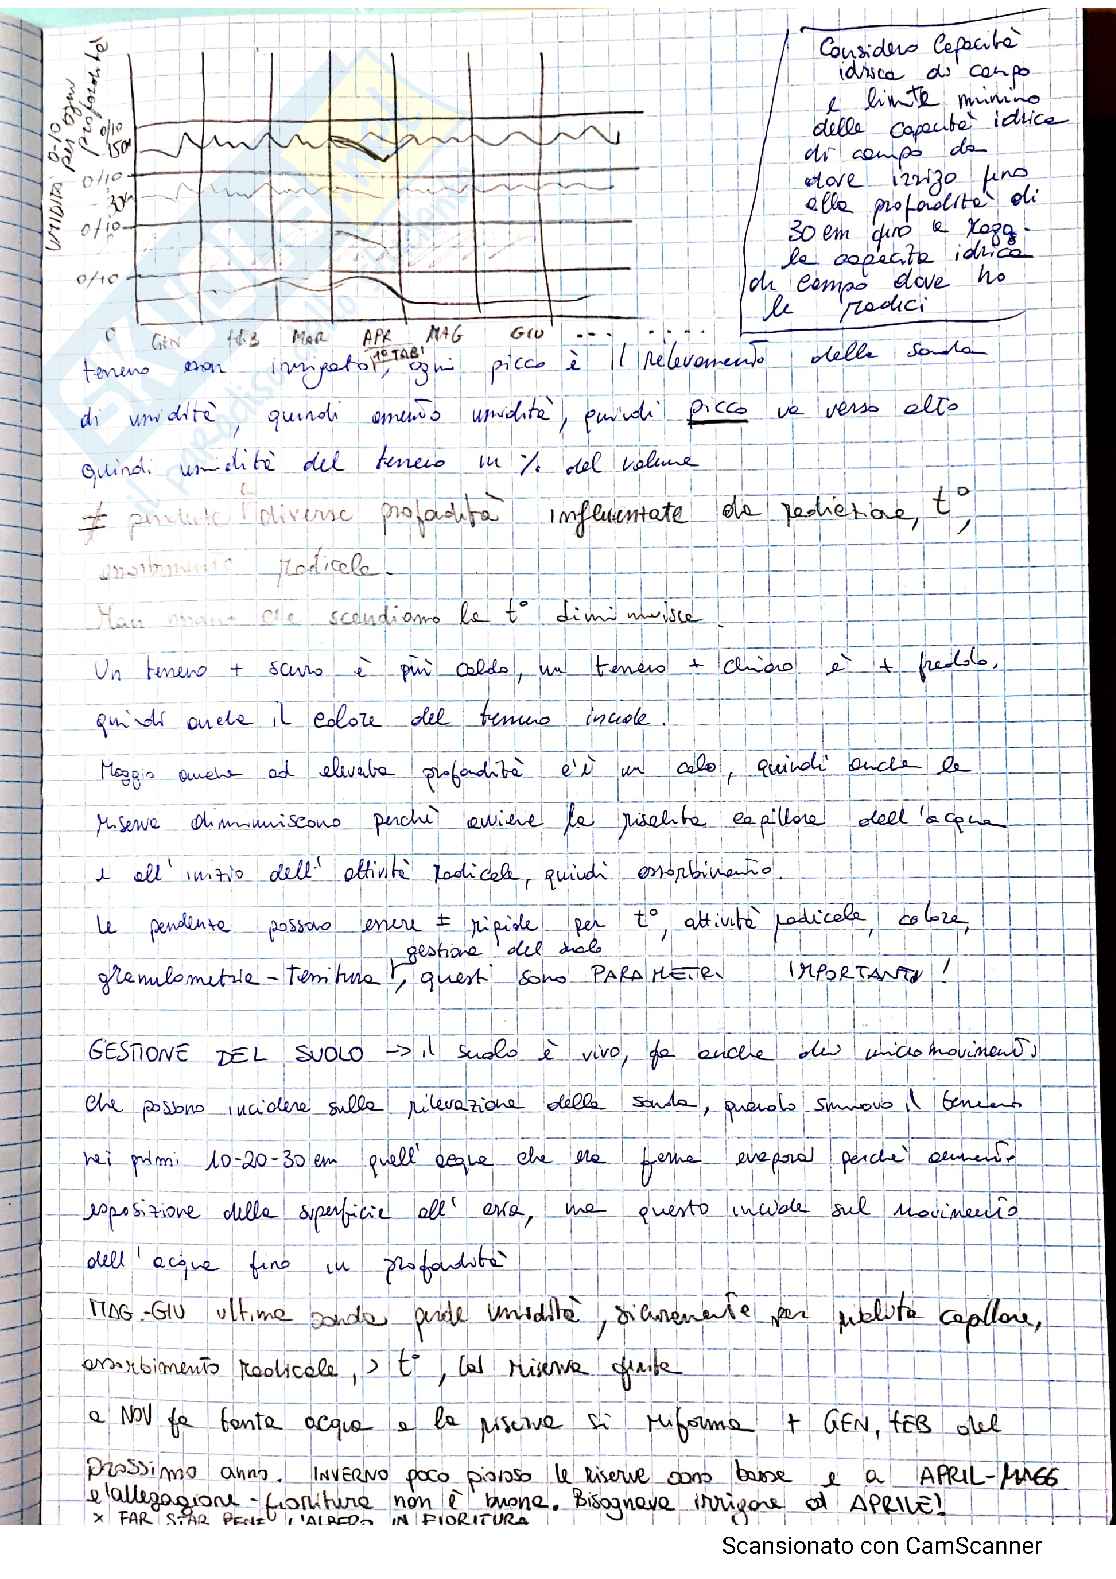 UMIDITÀ 0-10
per ogni
profondità
0/10
0/10
30
0/10
0/10
0
GEN FEB MAR APR MAG GIU ... ....
1° TAB
Considero capacità
idrica di campo
e limite minimo
della capacità idrica
di campo da
dove irrigo fino
alla profondità di
30 cm
la capacità idrica
di campo dove ho
le radici
terreno non irrigato, ogni picco è il rilevamento della sonda
di umidità, quindi aumento umidità, quindi picco va verso alto
quindi umidità del terreno in % del volume
≠ pendute diverse profondità influenzate da radiazione, t°,
assorbimento radicale.
Man mano che scendiamo la t° diminuisce.
Un terreno + scuro è più caldo, un terreno + chiaro è + freddo,
quindi anche il colore del terreno incide.
Maggio anche ad elevata profondità c'è un calo, quindi anche le
riserve diminuiscono perchè avviene la risalita capillare dell'acqua
e all'inizio dell'attività radicale, quindi assorbimento.
le pendenze possono essere ± ripide per t°, attività radicale, colore,
gestione del suolo
granulometria - tessitura, questi sono PARAMETRI IMPORTANTI!
GESTIONE DEL SUOLO -> il suolo è vivo, fa anche dei micromovimenti
che possono incidere sulla rilevazione della sonda, quando smuovo il terreno
nei primi 10-20-30 cm quell'acqua che era ferma evapora perchè aumento
esposizione della superficie all'aria, ma questo incide sul movimento
dell'acqua fino in profondità
MAG-GIU ultima sonda perde umidità, sicuramente per risalita capillare,
assorbimento radicale, > t°, la riserva finita
a NOV fa tanta acqua e la riserva si riforma + GEN, FEB del
prossimo anno. INVERNO poco piovoso le riserve sono basse e a APRIL-MAGG
e l'allegagione - fioritura non è buona. Bisognava irrigare ad APRILE!
x FAR STAR BENE L'ALBERO IN FIORITURA
Scansionato con CamScanner